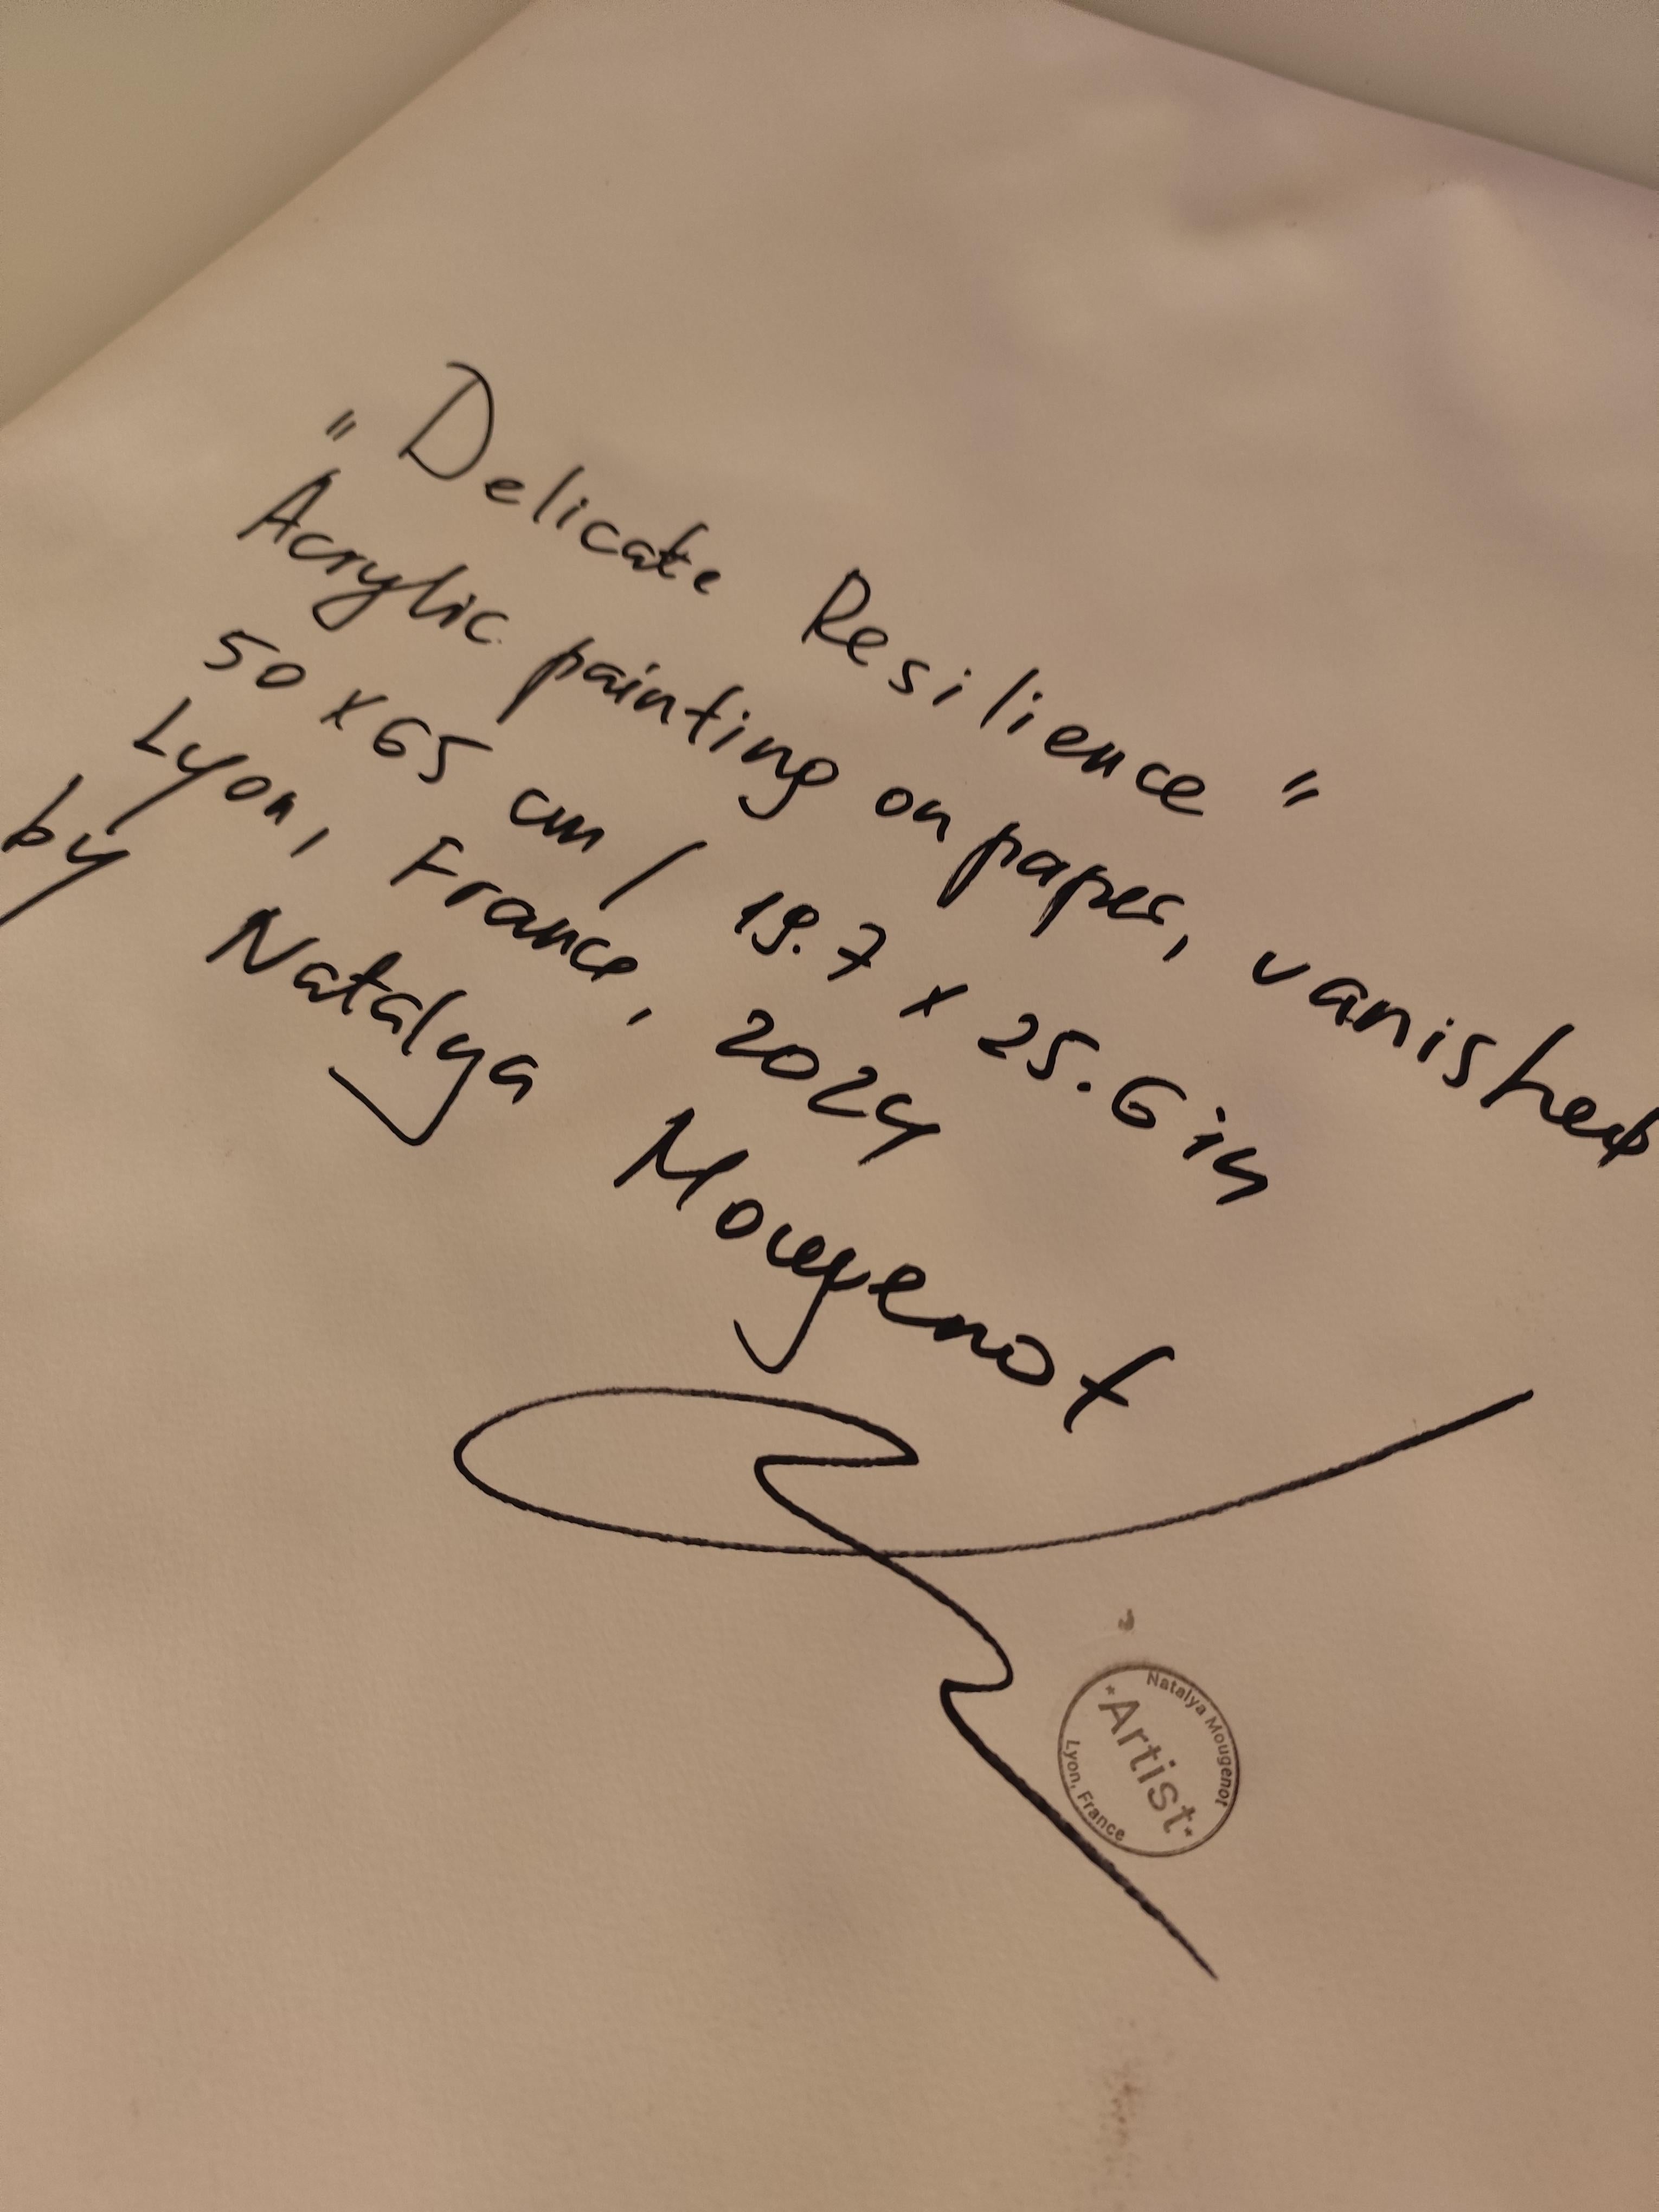 "Delicate Resilience"
Acrylic painting on paper, vanished
50 x 65 cm / 19.7 x 25.6 in
Lyon, France, 2024
by Natalya Mougenot
Natalya Mougenot
*Artist*
Lyon, France